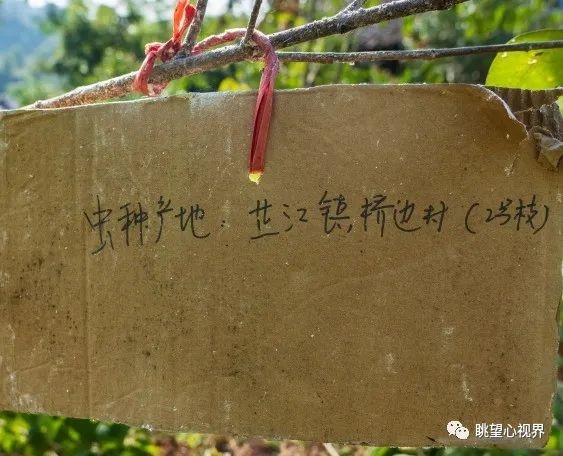 虫种产地：芷江镇桥边村（2号枝）
眺望心视界